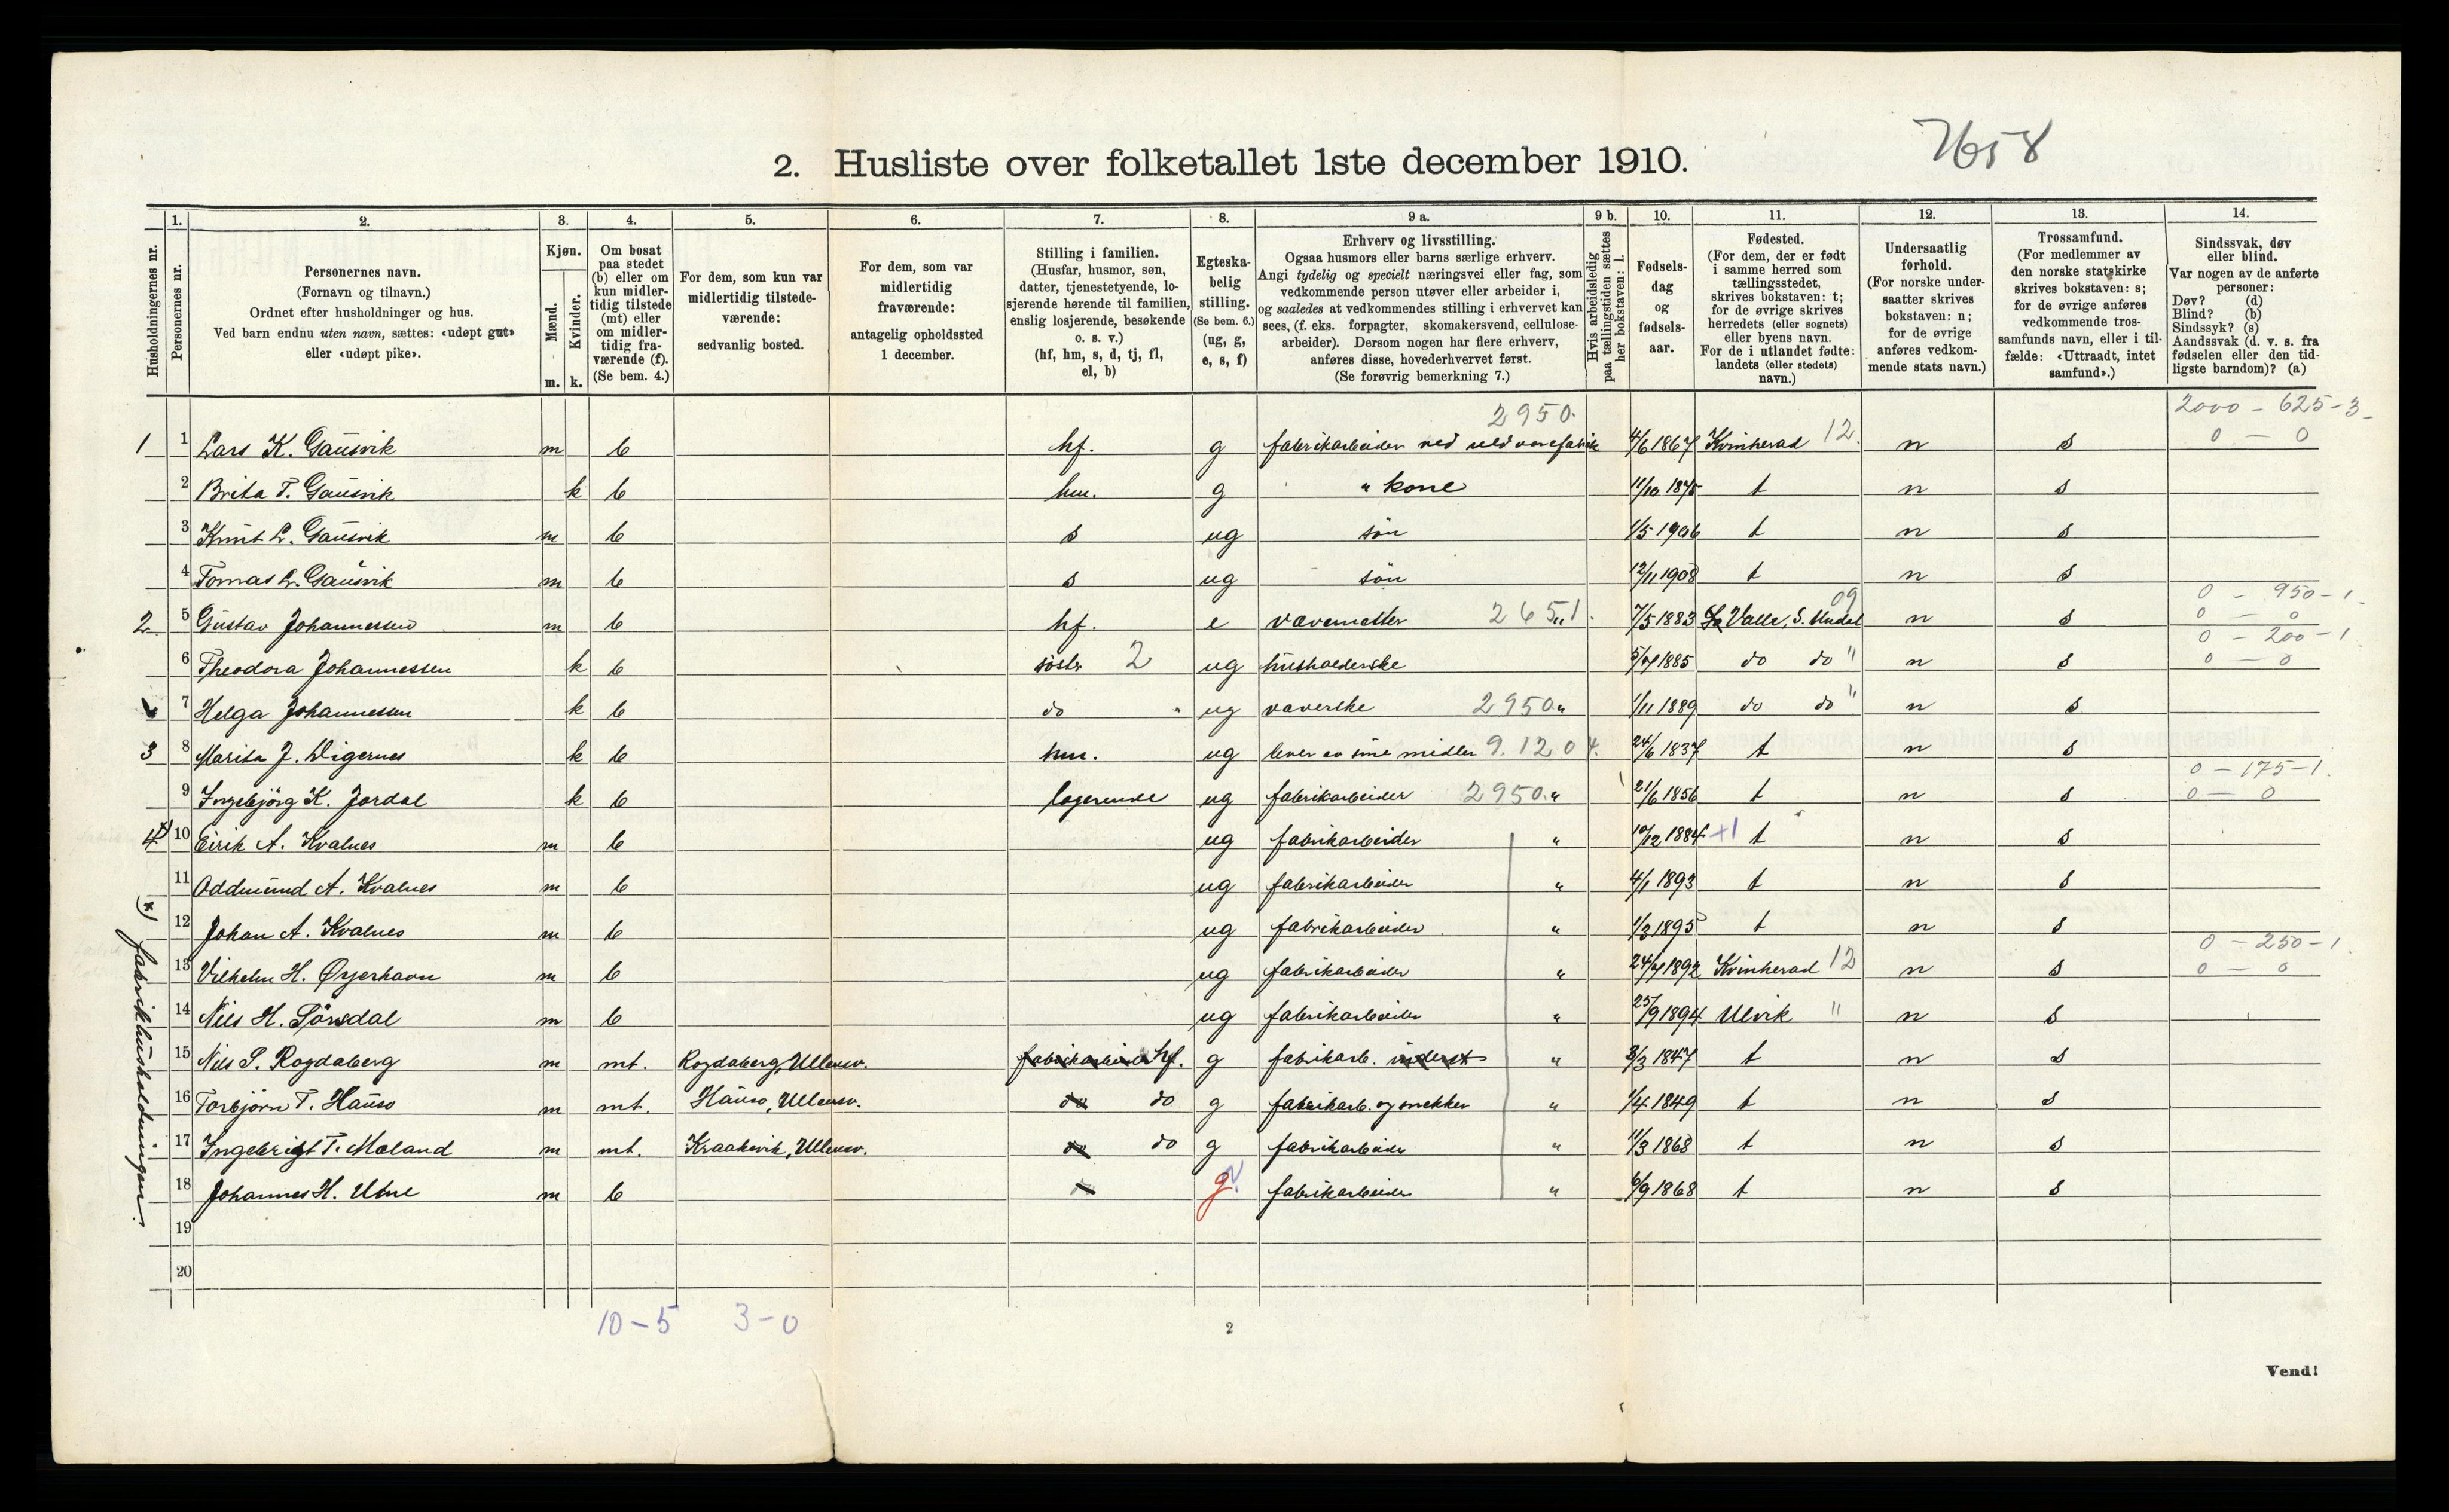 7658
2. Husliste over folketallet 1ste december 1910.
Husholdningernes nr.
1. Personernes nr.
2. Personernes navn. (Fornavn og tilnavn.) Ordnet efter husholdninger og hus. Ved barn endnu uten navn, sættes: «udøpt gut» eller «udøpt pike».
3. Kjøn. Mænd. m. Kvinder. k.
4. Om bosat paa stedet (b) eller om kun midlertidig tilstede (mt) eller om midlertidig fraværende (f). (Se bem. 4.)
5. For dem, som kun var midlertidig tilstedeværende: sedvanlig bosted.
6. For dem, som var midlertidig fraværende: antagelig opholdssted 1 december.
7. Stilling i familien. (Husfar, husmor, søn, datter, tjenestetyende, losjerende hørende til familien, enslig losjerende, besøkende o. s. v.) (hf, hm, s, d, tj, fl, el, b)
8. Egteskabelig stilling. (Se bem. 6.) (ug, g, e, s, f)
9 a. Erhverv og livsstilling. Ogsaa husmors eller barns særlige erhverv. Angi tydelig og specielt næringsvei eller fag, som vedkommende person utøver eller arbeider i, og saaledes at vedkommendes stilling i erhvervet kan sees, (f. eks. forpagter, skomakersvend, cellulosearbeider). Dersom nogen har flere erhverv, anføres disse, hovederhvervet først. (Se forøvrig bemerkning 7.)
9 b. Hvis arbeidsledig paa tællingstiden sættes her bokstaven: l.
10. Fødselsdag og fødselsaar.
11. Fødested. (For dem, der er født i samme herred som tællingsstedet, skrives bokstaven: t; for de øvrige skrives herredets (eller sognets) eller byens navn. For de i utlandet fødte: landets (eller stedets) navn.)
12. Undersaatlig forhold. (For norske undersaatter skrives bokstaven: n; for de øvrige anføres vedkommende stats navn.)
13. Trossamfund. (For medlemmer av den norske statskirke skrives bokstaven: s; for de øvrige anføres vedkommende trossamfunds navn, eller i tilfælde: «Uttraadt, intet samfund».)
14. Sindssvak, døv eller blind. Var nogen av de anførte personer: Døv? (d) Blind? (b) Sindssyk? (s) Aandssvak (d. v. s. fra fødselen eller den tidligste barndom)? (a)
2950. 2000 - 625 - 3
1 1 Lars K. Gausvik m b hf. g fabrikarbeider ved uldvarefabrik 4/6 1867 Kvinherad 12. n s 0 - 0
2 Brita T. Gausvik k b hm. g " kone 11/10 1875 t n s
3 Knut L. Gausvik m b s ug søn 1/5 1906 t n s
4 Tomas L. Gausvik m b s ug søn 12/11 1908 t n s
09 0 - 950 - 1.
2 5 Gustav Johannessen m b hf. e vævemester 2651. 7/5 1883 Valle, S. Undal n s 0 - 0
0 - 200 - 1
6 Theodora Johannessen k b søster 2 ug husholderske 5/7 1885 do do " n s 0 - 0
7 Helga Johannessen k b do " ug væverske 2950. " 1/11 1889 do do " n s
3 8 Marita J. Digernes k b hm. ug lever av sine midler 9.12.04. 24/6 1837 t n s
0 - 175 - 1.
9 Ingebjörg K. Jordal k b logerende ug fabrikarbeider 2950. " 21/6 1856 t n s 0 - 0
4 x) 10 Eirik A. Kvalnes m b ug fabrikarbeider " 10/12 1884 +1 t n s
11 Oddmund A. Kvalnes m b ug fabrikarbeider " 4/1 1893 t n s
12 Johan A. Kvalnes m b ug fabrikarbeider " 1/3 1895 t n s
0 - 250 - 1.
13 Vilhelm H. Øyerhavn m b ug fabrikarbeider " 24/7 1892 Kvinherad 12 n s 0 - 0
14 Nils H. Sörsdal m b ug fabrikarbeider " 25/9 1894 Ulvik " n s
15 Nils S. Rogdaberg m mt. Rogdaberg, Ullensv. fabrikarbeider hf. g fabrikarb. inderst " 3/3 1847 t n s
16 Torbjörn T. Hauso m mt. Hauso, Ullensv. do do g fabrikarb. og snekker " 1/4 1849 t n s
17 Ingebrigt T. Mæland m mt. Kraakevik, Ullensv. do do g fabrikarbeider " 11/3 1868 t n s
18 Johannes H. Utne m b g? fabrikarbeider " 6/9 1868 t n s
19
20
x) fabrikhusholdningen.
10 - 5 3 - 0
2
Vend!